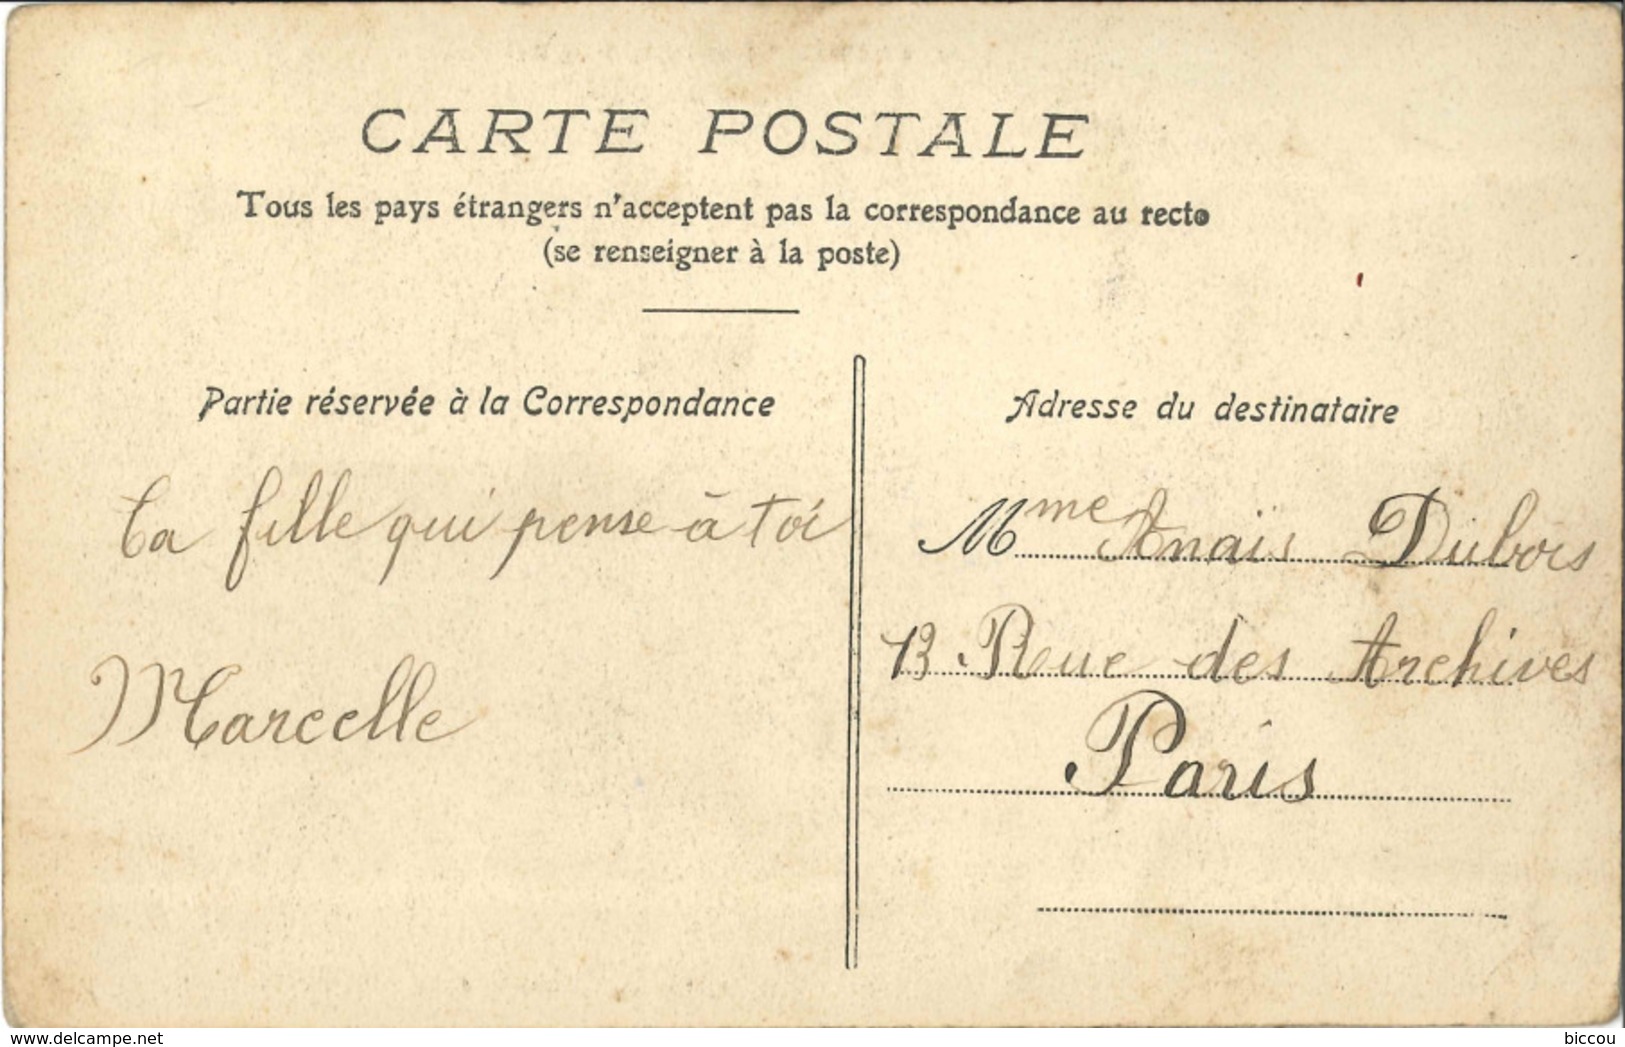 CARTE POSTALE
Tous les pays étrangers n'acceptent pas la correspondance au recto
(se renseigner à la poste)
Partie réservée à la Correspondance
Ta fille qui pense à toi
Marcelle
Adresse du destinataire
Mme Anaïs Dubois
13 Rue des Archives
Paris
https://www.delcampe.net
biccou